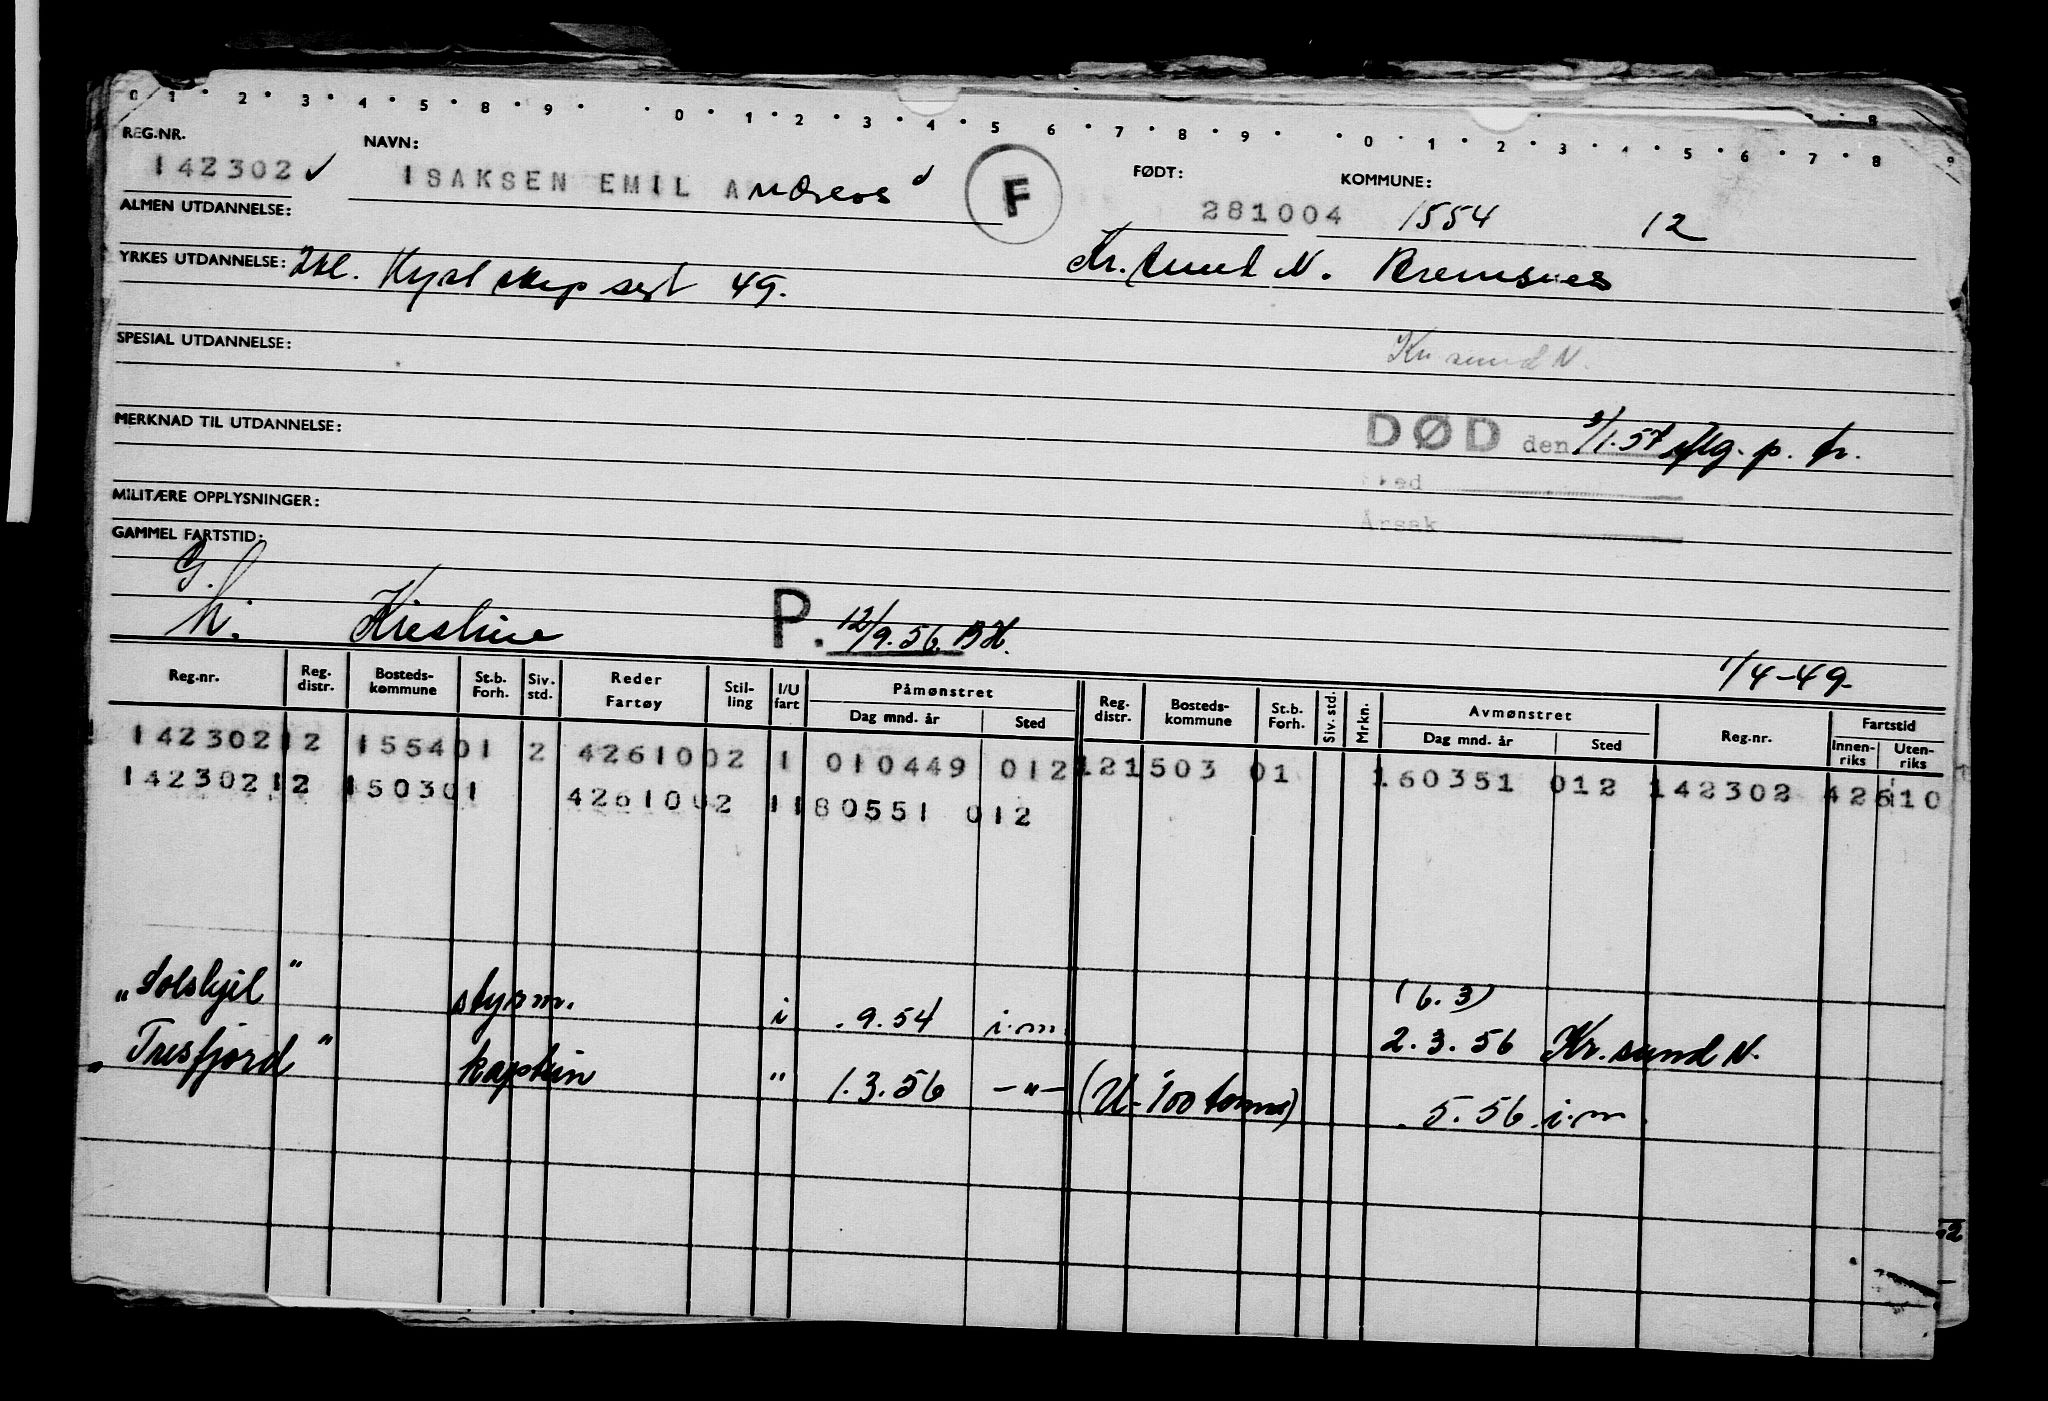 0 1 2 3 4 5 8 9 0 1 2 3 4 5 6 7 8 9 0 1 2 3 4 5 6 7 8 9
REG.NR. NAVN: FØDT: KOMMUNE:
142302 ✓ ISAKSEN EMIL Andreas F 281004 1554 12
ALMEN UTDANNELSE:
Kr. sund N. Bremsnes
YRKES UTDANNELSE: 2kl. Kyst skip sert 49.
SPESIAL UTDANNELSE: Kr sund N.
MERKNAD TIL UTDANNELSE: DØD den 3/1.57 p. fr.
Sted
MILITÆRE OPPLYSNINGER:
Årsak
GAMMEL FARTSTID:
G.
h. Kristine P. 12/9.56 BH.
1/4-49.
Reg.nr. Reg. distr. Bosteds-kommune St.b. Forh. Siv. std. Reder Fartøy Stil-ling I/U fart Påmønstret Dag mnd. år Sted Reg. distr. Bosteds-kommune St.b. Forh. Siv. std. Mrkn. Avmønstret Dag mnd. år Sted Reg.nr. Fartstid Innen-riks Uten-riks
142302 12 1554 01 2 42610 02 1 010449 012 12 1503 01 160351 012 142302 42610
142302 12 1503 01 42610 02 1 180551 012
"Solskjel" styrm. i .9.54 i.m (6.3) 2.3.56 Kr. sund N.
"Tresfjord" kaptein " 1.3.56 -"- (U-100 tonns) .5.56 i.m.